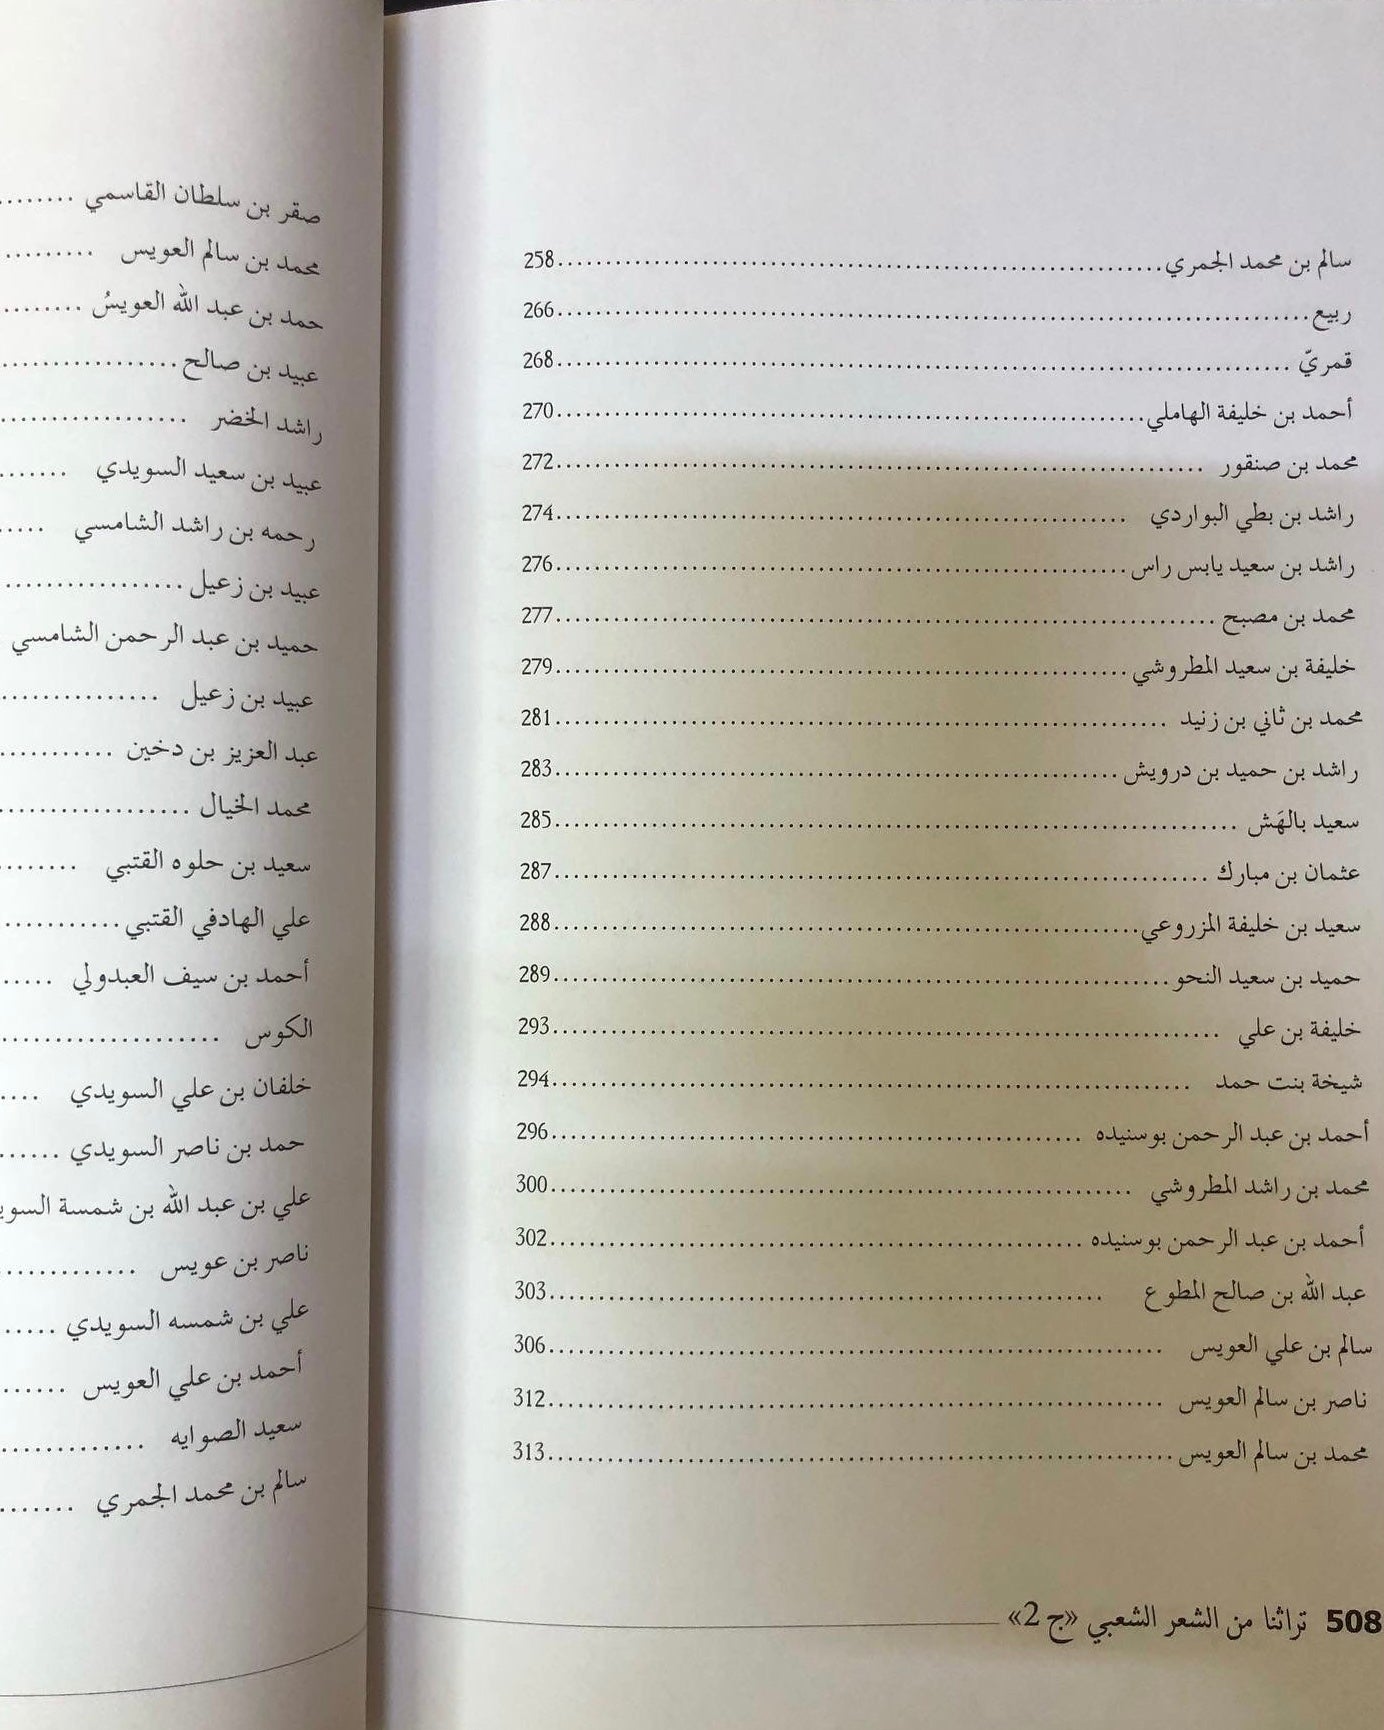 سالم بن محمد الجمري......258
ربيع......266
قمريّ......268
أحمد بن خليفة الهاملي......270
محمد بن صنقور......272
راشد بن بطي البواردي......274
راشد بن سعيد يابس راس......276
محمد بن مصبح......277
خليفة بن سعيد المطروشي......279
محمد بن ثاني بن زنيد......281
راشد بن حميد بن درويش......283
سعيد بالهَش......285
عثمان بن مبارك......287
سعيد بن خليفة المزروعي......288
حميد بن سعيد النحو......289
خليفة بن علي......293
شيخة بنت حمد......294
أحمد بن عبد الرحمن بوسنيده......296
محمد بن راشد المطروشي......300
أحمد بن عبد الرحمن بوسنيده......302
عبد الله بن صالح المطوع......303
سالم بن علي العويس......306
ناصر بن سالم العويس......312
محمد بن سالم العويس......313
508 تراثنا من الشعر الشعبي «ج 2»
صقر بن سلطان القاسمي......
محمد بن سالم العويس......
حمد بن عبد الله العويسُ......
عبيد بن صالح......
راشد الخضر......
عبيد بن سعيد السويدي......
رحمه بن راشد الشامسي......
عبيد بن زعيل......
حميد بن عبد الرحمن الشامسي
عبيد بن زعيل......
عبد العزيز بن دخين......
محمد الخيال......
سعيد بن حلوه القتبي......
علي الهادفي القتبي......
أحمد بن سيف العبدولي......
الكوس......
خلفان بن علي السويدي......
حمد بن ناصر السويدي......
علي بن عبد الله بن شمسة
ناصر بن عويس......
علي بن شمسه السويدي......
أحمد بن علي العويس......
سعيد الصوايه......
سالم بن محمد الجمري......